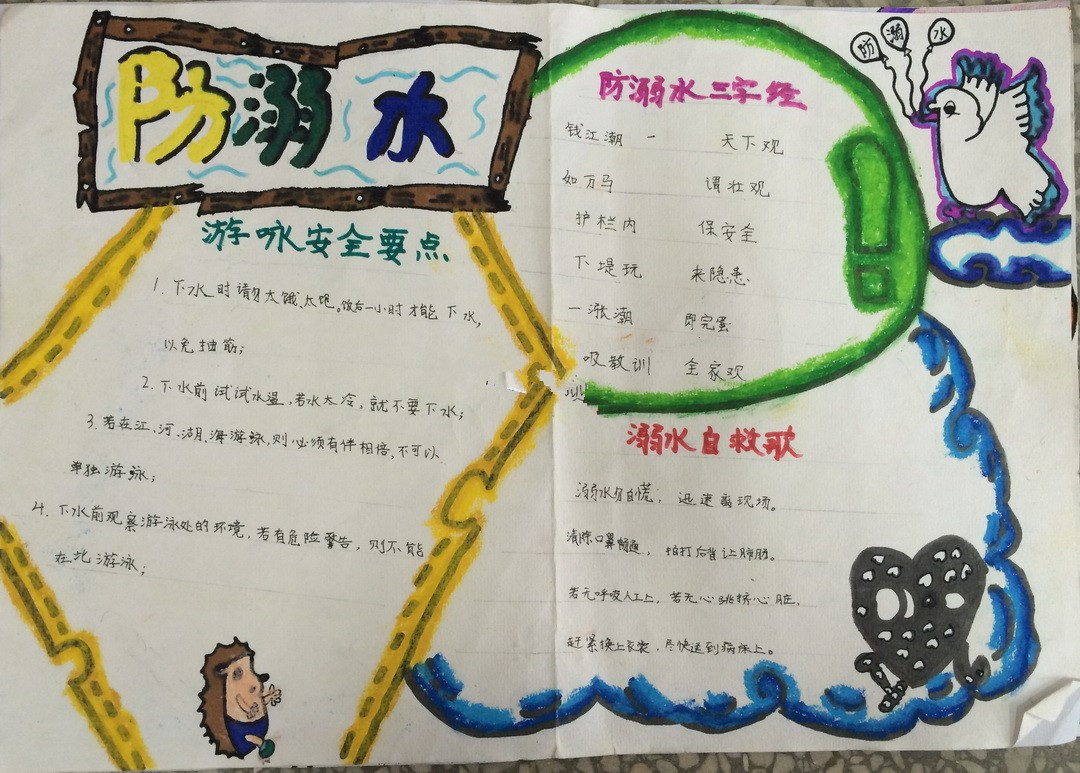 防溺水
游咏安全要点
1. 下水时请勿太饿、太饱。饭后一小时才能下水,
以免抽筋;
2. 下水前试试水温,若水太冷,就不要下水;
3. 若在江、河、湖、海游泳,则必须有伴相陪,不可以
单独游泳;
4. 下水前观察游泳处的环境,若有危险警告,则不能
在此游泳;
防溺水三字经
钱江潮一 天下观
如万马 谓壮观
护栏内 保安全
下堤玩 来隐患
一涨潮 即完蛋
吸教训 全家欢
溺水自救歌
溺水勿自慌,迅速离现场。
清除口鼻畅通,拍打后背让肺肠。
若无呼吸人工上,若无心跳挤心脏,
赶紧换上衣裳,尽快送到病床上。
防溺水